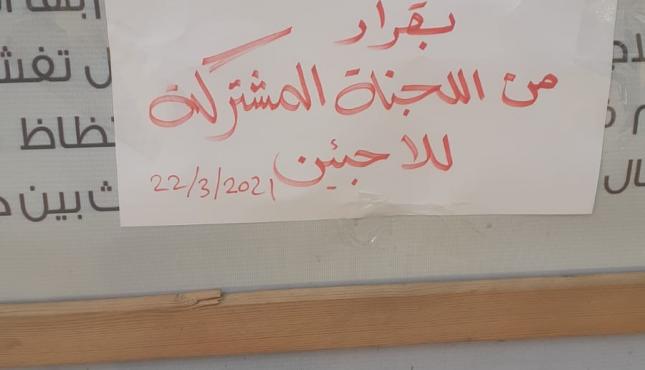 بقرار
من اللجنة المشتركة
للاجئين
22/3/2021
تظاظ
ث بين